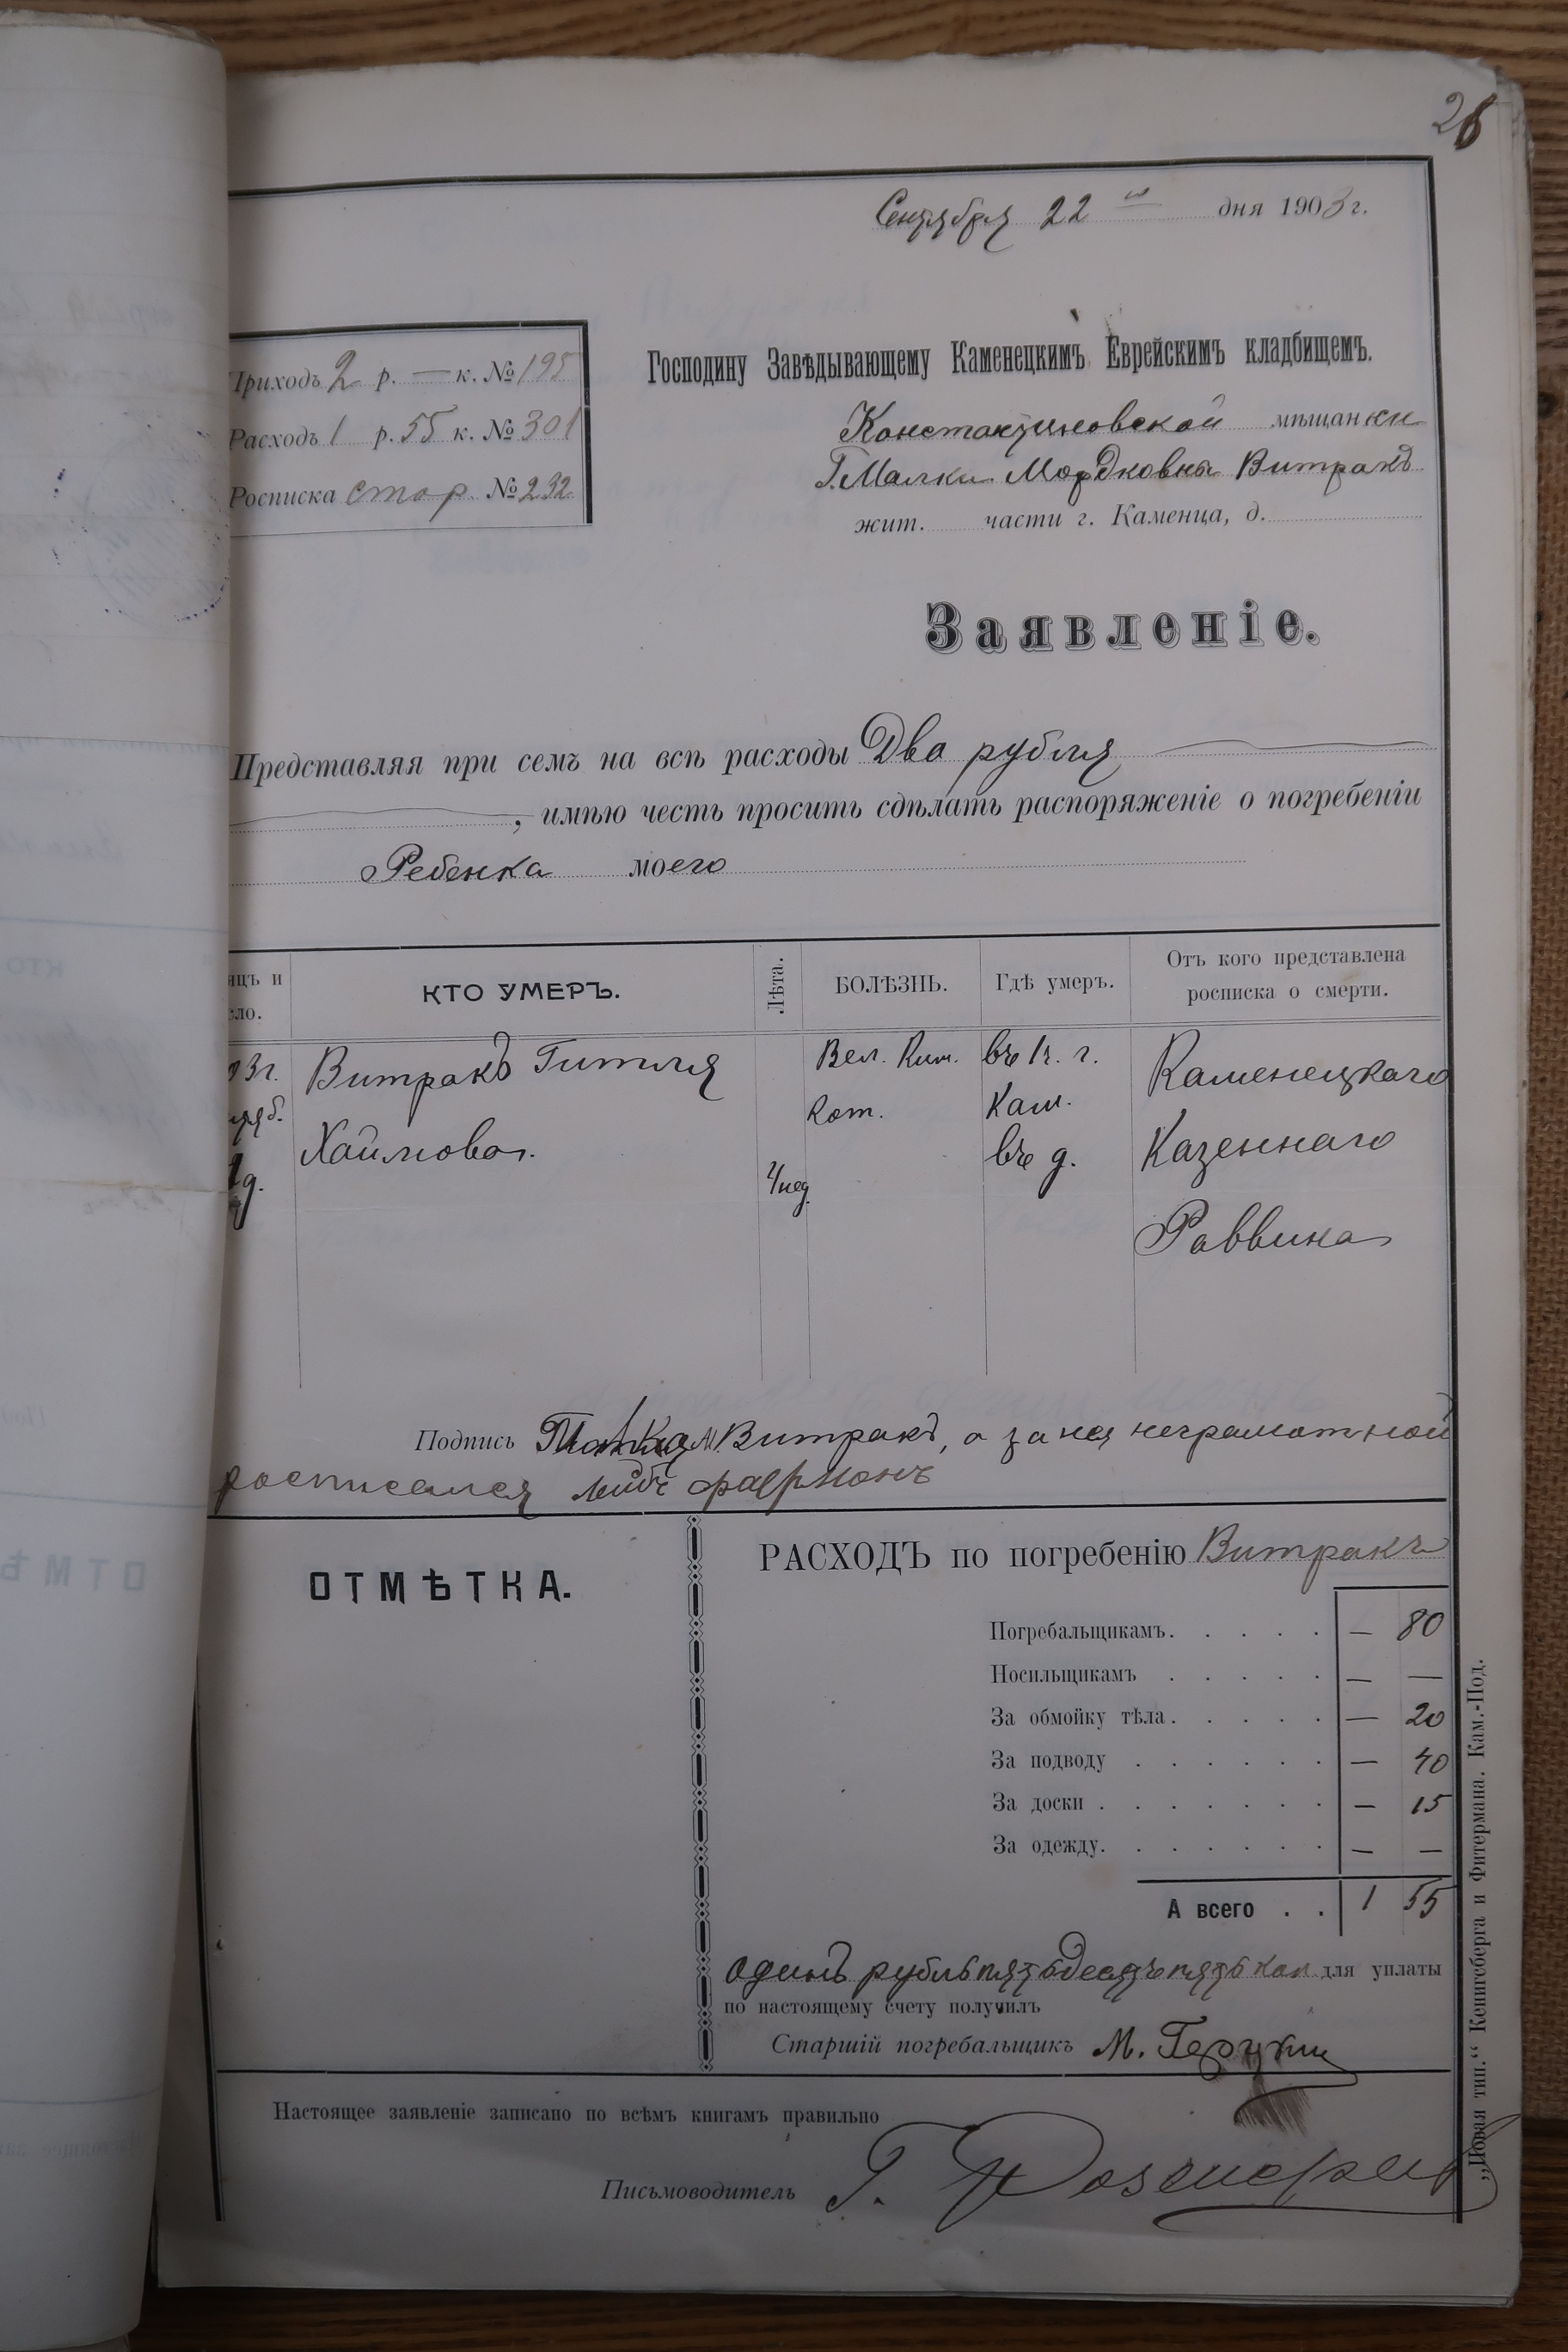 26
Сентября 22 го дня 1903 г.
Приходъ 2 р. — к. № 195
Расходъ 1 р. 55 к. № 301
Росписка стар. № 232
Господину Завѣдывающему Каменецкимъ Еврейскимъ кладбищемъ.
Константиновской мѣщанки
Г. Малки Мордковны Витракъ
жит. части г. Каменца, д.
Заявленіе.
Представляя при семъ на всѣ расходы Два рубля
, имѣю честь просить сдѣлать распоряженіе о погребеніи
Ребенка моего
яцъ и
сло.
КТО УМЕРЪ.
Лѣта.
БОЛѢЗНЬ.
Гдѣ умеръ.
Отъ кого представлена
росписка о смерти.
3 г. Витракъ Гитля Вел. Киш. въ 1 ч. г. Каменецкаго
тяб. Хаимова. Кат. Кам. Казеннаго
д. нед. въ д. Раввина
Подпись М. Витракъ, а за нея неграмотной
росписался Лейбъ
ОТМѢТКА.
РАСХОДЪ по погребенію Витракъ
Погребальщикамъ. — 80
Носильщикамъ — —
За обмойку тѣла. — 20
За подводу — 40
За доски — 15
За одежду. — —
А всего 1 55
одинъ рубль пятьдесятъ пять коп для уплаты
по настоящему счету получилъ
Старшій погребальщикъ М.
Настоящее заявленіе записано по всѣмъ книгамъ правильно
Письмоводитель Г.
„Новая тип.“ Кенигсберга и Фитермана. Кам.-Под.